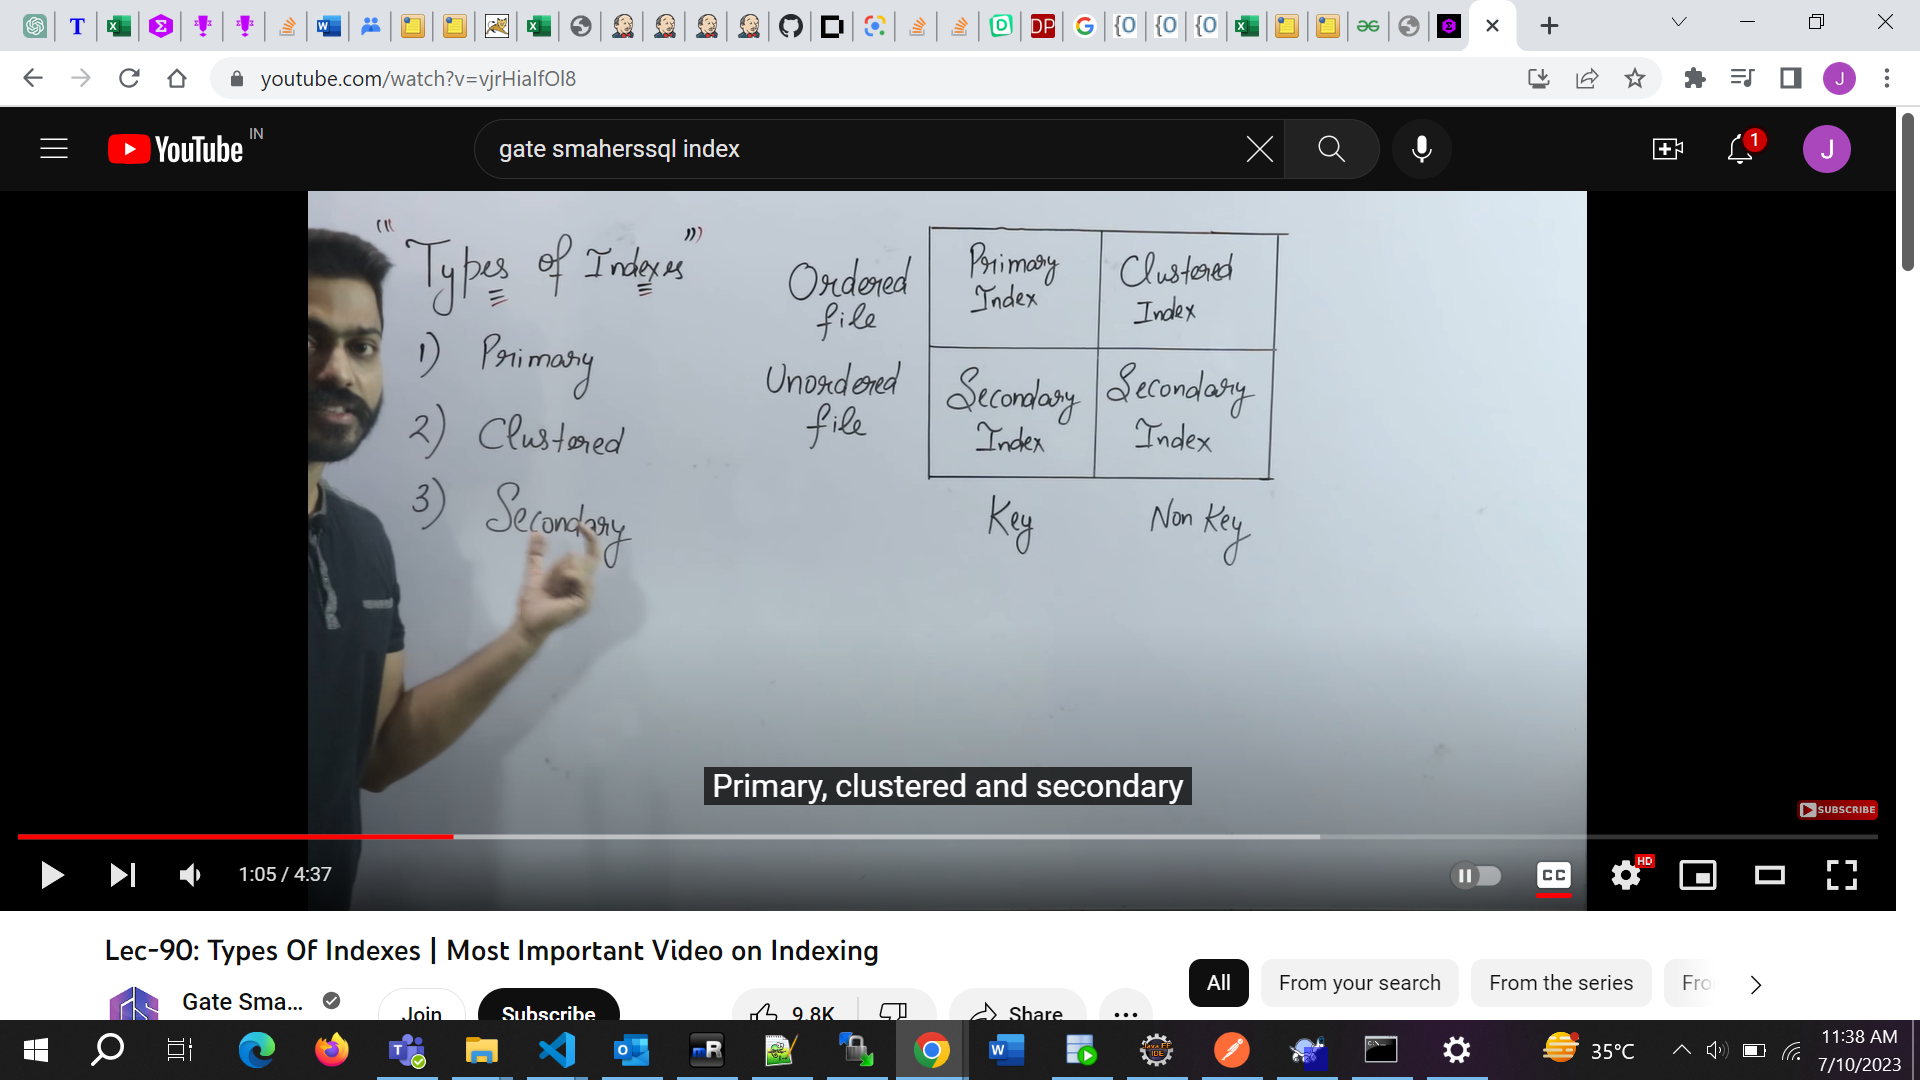 youtube.com/watch?v=vjrHiaIfOl8
YouTube IN
gate smaherssql index
1
J
J
Types of Indexes
1) Primary
2) Clustered
3) Secondary
Ordered file
Unordered file
Primary Index
Clustered Index
Secondary Index
Secondary Index
Key
Non Key
Primary, clustered and secondary
SUBSCRIBE
1:05 / 4:37
CC
HD
Lec-90: Types Of Indexes | Most Important Video on Indexing
Gate Sma...
Join
Subscribe
9.8K
Share
All
From your search
From the series
Fro
35°C
11:38 AM
7/10/2023